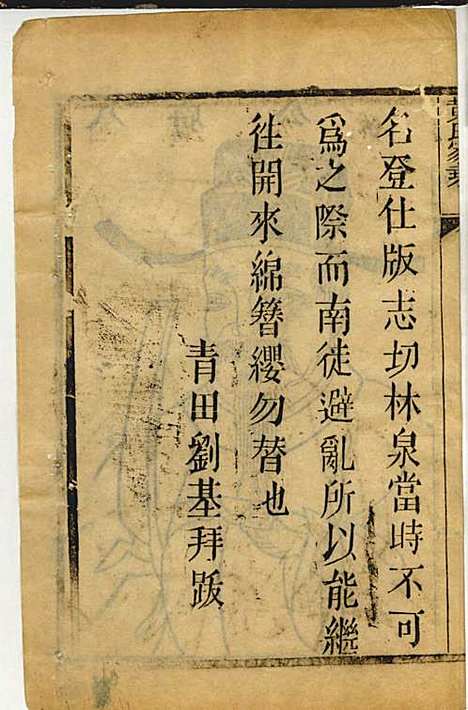 名登仕版志切林泉當時不可
爲之際而南徙避亂所以能繼
徃開來綿簪纓勿替也
青田劉基拜跋